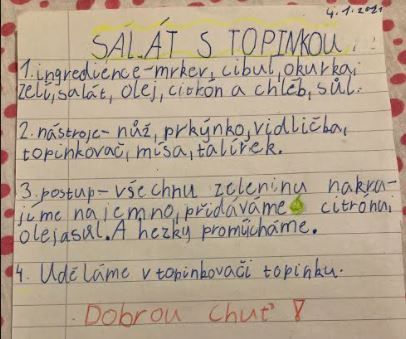 4.1.2021
SALÁT S TOPINKOU
1. ingredience-mrkev, cibul, okurka,
zelí, salát, olej, citrón a chléb, sůl.
2. nástroje- nůž, prkýnko, vidlička,
topinkovač, mísa, talířek.
3. postup- všechnu zeleninu nakra-
júme najemno, přidáváme citrónu,
olej a sůl. A hezky promýcháme.
4. Uděláme v topinkovači topinku.
Dobrou chuť!